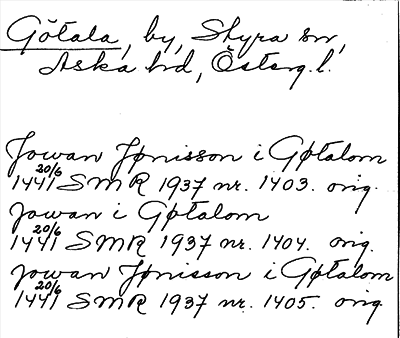 Götala, by, Styra sn,
Aska hd, Österg. l.
Jowan Jønisson i Gøtalom
1441 20/6 SMR 1937 nr. 1403. orig.
Jowan i Gøtalom
1441 20/6 SMR 1937 nr. 1404. orig.
Jowan Jønisson i Gøtalom
1441 20/6 SMR 1937 nr. 1405. orig